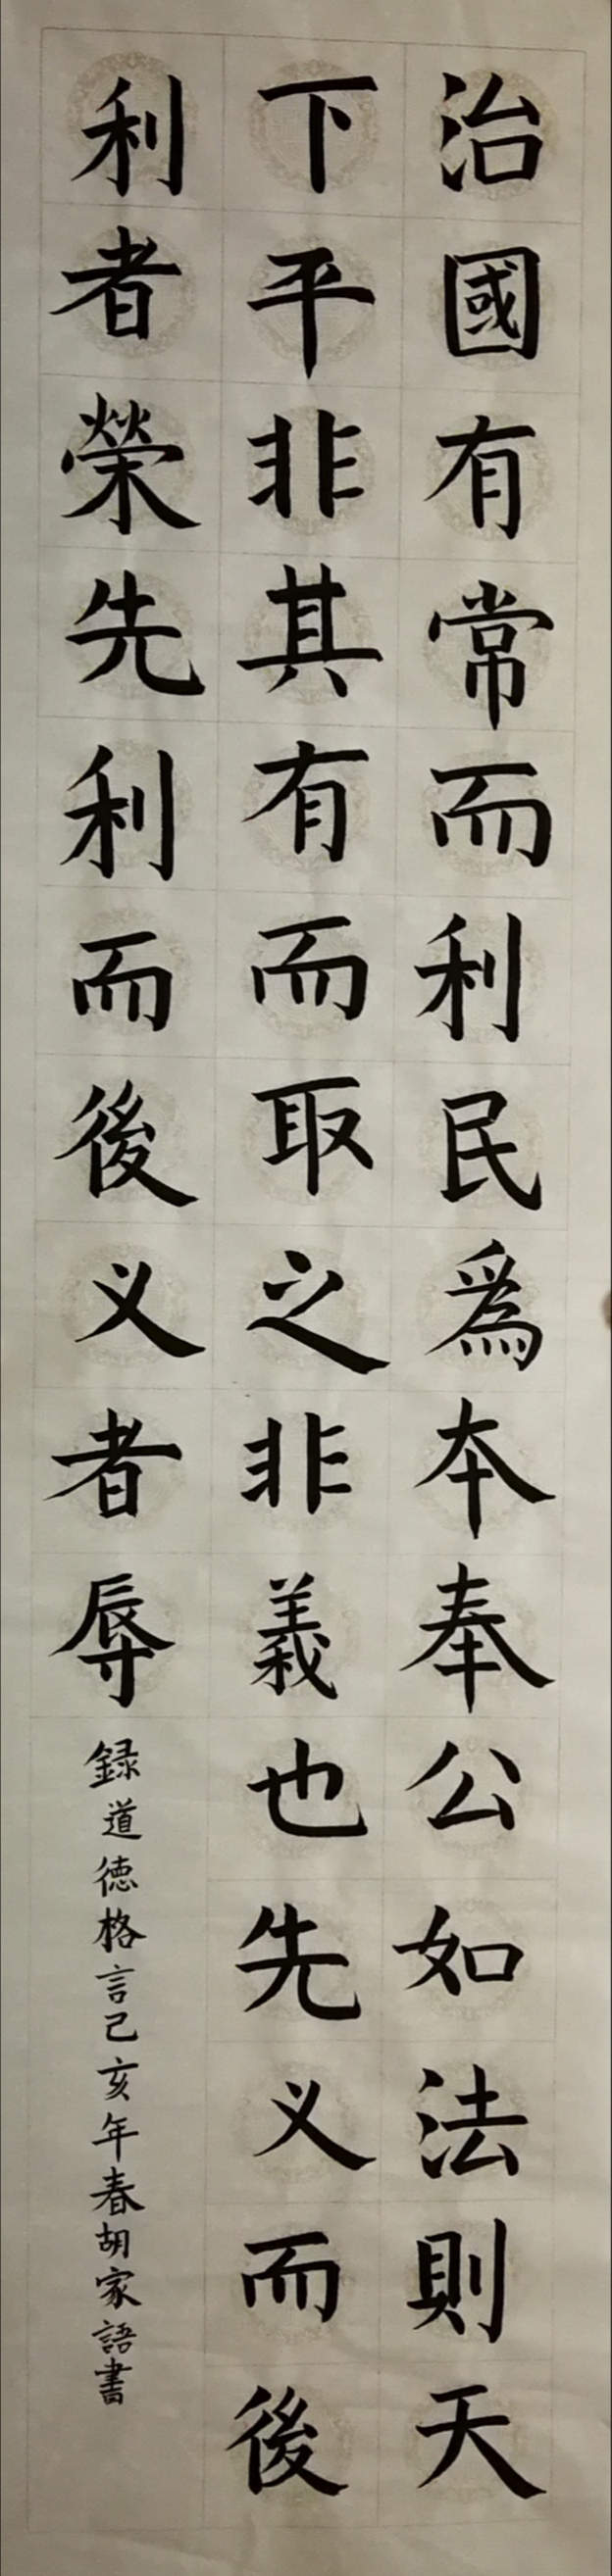 治國有常而利民爲本奉公如法則天
下平非其有而取之非義也先义而後
利者榮先利而後义者辱
録道德格言己亥年春胡家語書